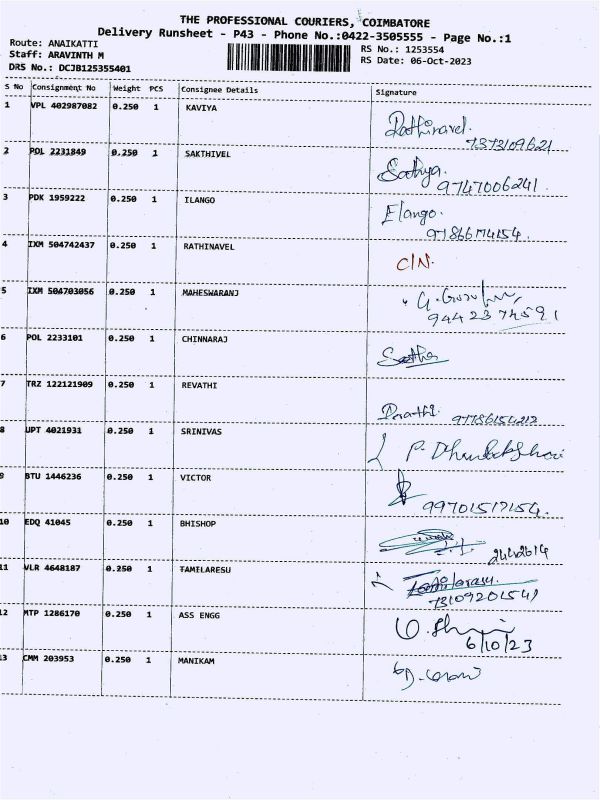 THE PROFESSIONAL COURIERS, COIMBATORE
Delivery Runsheet - P43 - Phone No.:0422-3505555 - Page No.:1
Route: ANAIKATTI
Staff: ARAVINTH M
DRS No.: DCJB125355401
RS No.: 1253554
RS Date: 06-Oct-2023
S No Consignment No Weight PCS Consignee Details Signature
1 VPL 402987082 0.250 1 KAVIYA Rathinavel.
7373109621
2 POL 2231849 0.250 1 SAKTHIVEL Sathya.
9747006241.
3 PDK 1959222 0.250 1 ILANGO Elango.
4 IXM 504742437 0.250 1 RATHINAVEL C/N.
5 IXM 504703056 0.250 1 MAHESWARANJ
9442374591
6 POL 2233101 0.250 1 CHINNARAJ
7 TRZ 122121909 0.250 1 REVATHI
8 UPT 4021931 0.250 1 SRINIVAS
9 BTU 1446236 0.250 1 VICTOR
10 EDQ 41045 0.250 1 BHISHOP
11 VLR 4648187 0.250 1 TAMILARESU Tamilarasu.
12 MTP 1286170 0.250 1 ASS ENGG
6/10/23
13 CMM 203953 0.250 1 MANIKAM